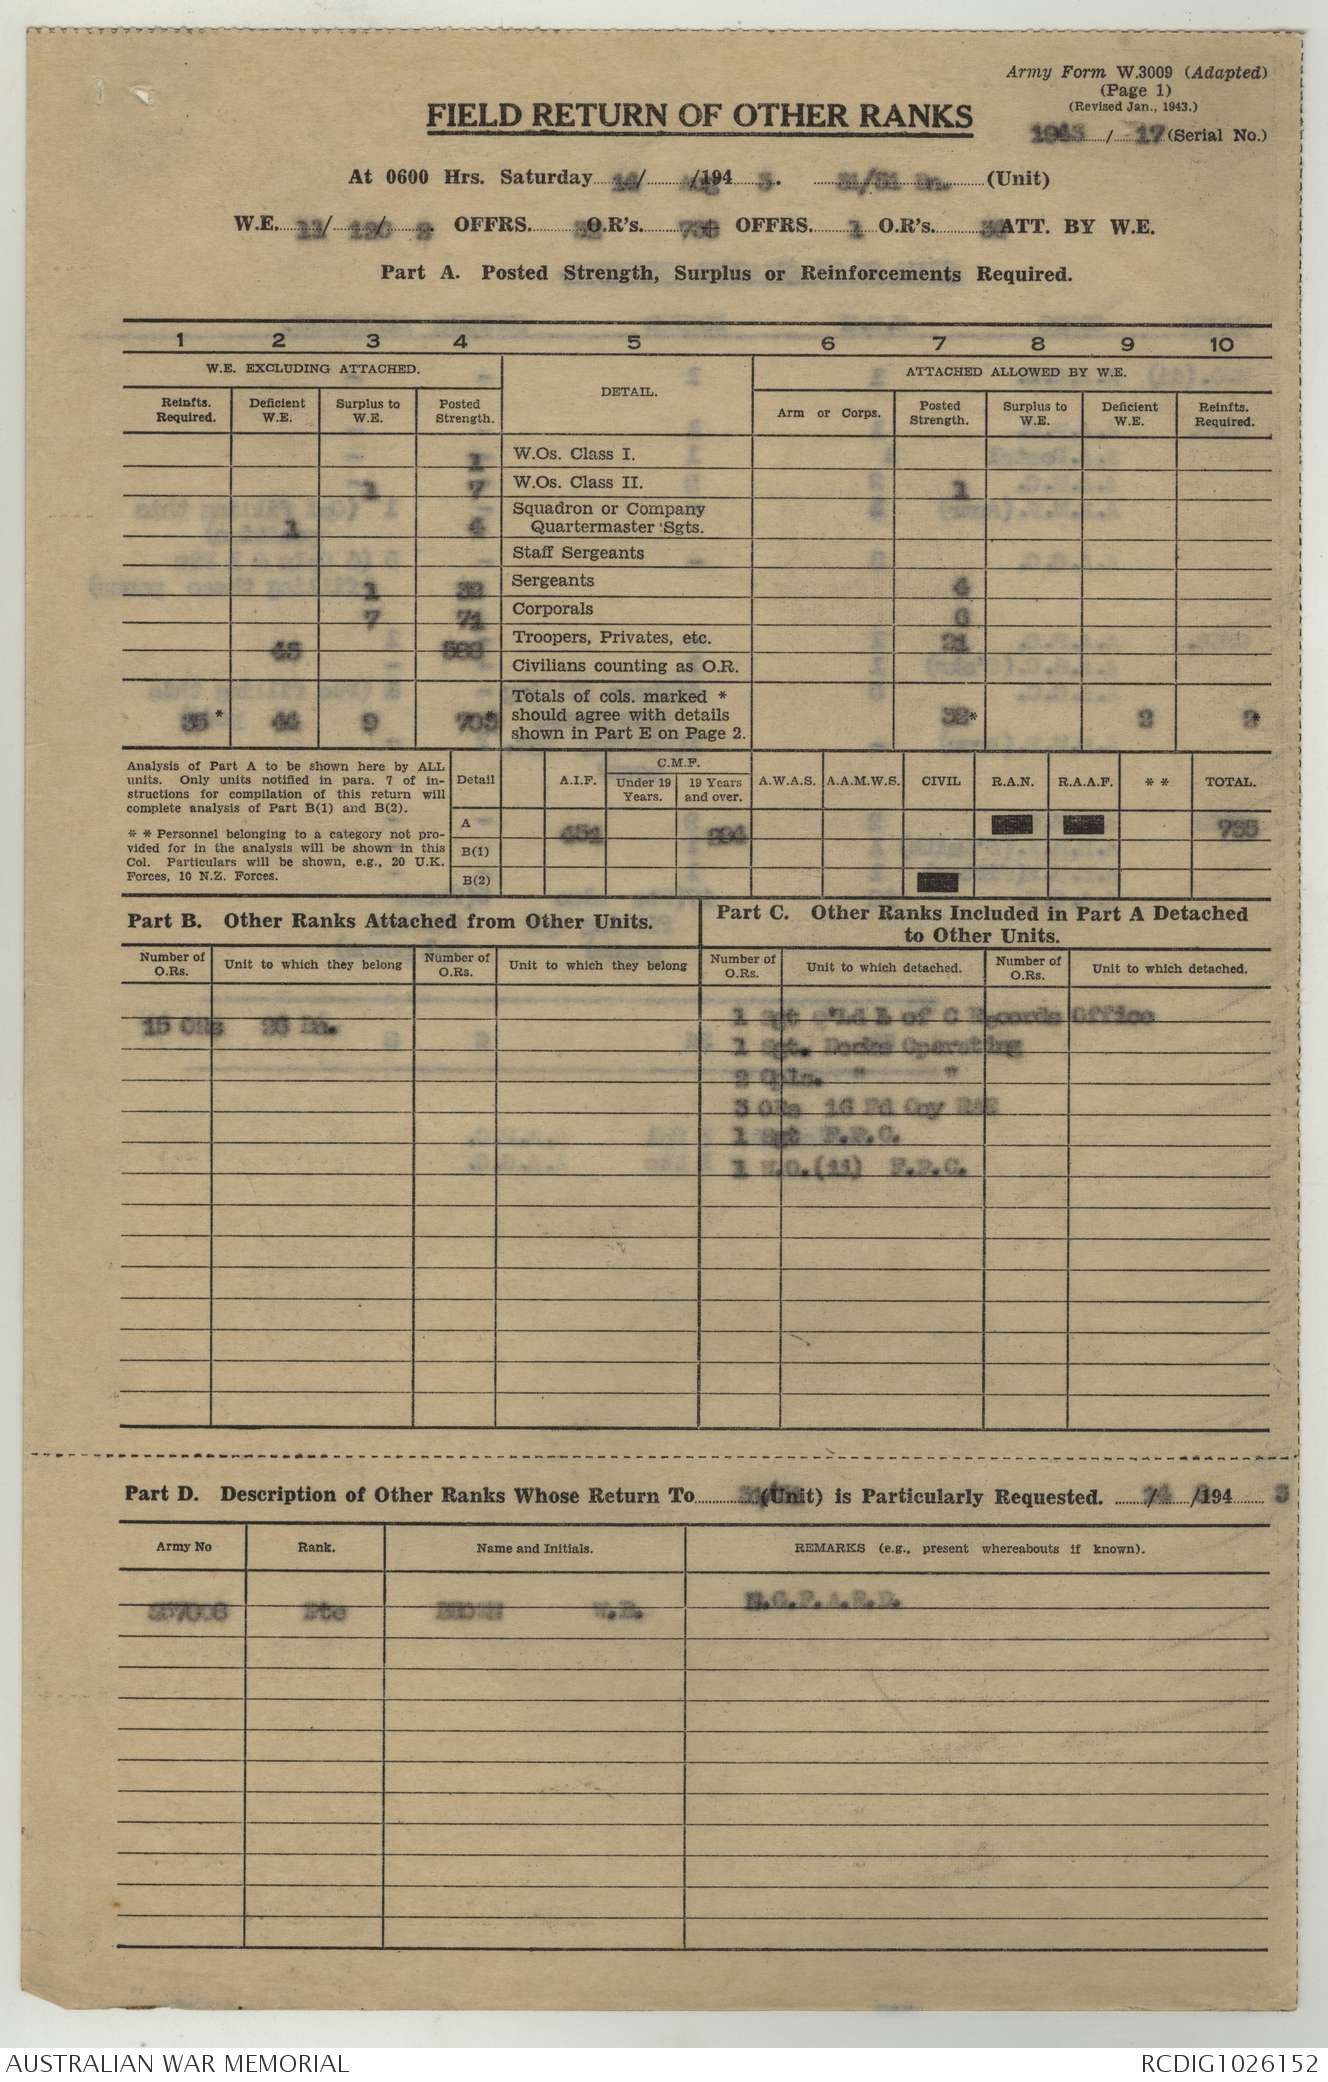 Army Form W.3009 (Adapted)
(Page 1)
(Revised Jan., 1943.)
FIELD RETURN OF OTHER RANKS
1943 / 17 (Serial No.)
At 0600 Hrs. Saturday 14/ Aug /194 3. 31/51 Bn. (Unit)
W.E. / / 2. OFFRS. O.R's. OFFRS. 1 O.R's. ATT. BY W.E.
Part A. Posted Strength, Surplus or Reinforcements Required.
1 2 3 4 5 6 7 8 9 10
W.E. EXCLUDING ATTACHED. DETAIL. ATTACHED ALLOWED BY W.E.
Reinfts. Required. Deficient W.E. Surplus to W.E. Posted Strength. Arm or Corps. Posted Strength. Surplus to W.E. Deficient W.E. Reinfts. Required.
1 W.Os. Class I.
1 7 W.Os. Class II. 1
1 4 Squadron or Company Quartermaster Sgts.
Staff Sergeants
1 32 Sergeants 4
7 71 Corporals 6
Troopers, Privates, etc. 21
Civilians counting as O.R.
35* 44 9 703* Totals of cols. marked * should agree with details shown in Part E on Page 2. 32* 2 2*
Analysis of Part A to be shown here by ALL units. Only units notified in para. 7 of instructions for compilation of this return will complete analysis of Part B(1) and B(2).
* * Personnel belonging to a category not provided for in the analysis will be shown in this Col. Particulars will be shown, e.g., 20 U.K. Forces, 10 N.Z. Forces.
Detail A.I.F. C.M.F. Under 19 Years. 19 Years and over. A.W.A.S. A.A.M.W.S. CIVIL R.A.N. R.A.A.F. * * TOTAL.
A 451 284 735
B(1)
B(2)
Part B. Other Ranks Attached from Other Units.
Part C. Other Ranks Included in Part A Detached to Other Units.
Number of O.Rs. Unit to which they belong Number of O.Rs. Unit to which they belong Number of O.Rs. Unit to which detached. Number of O.Rs. Unit to which detached.
15 ORs 26 Bn.
1 Sgt Q'ld L of C Records Office
1 Sgt. Docks Operating
2 Cpls. " "
3 ORs 16 Fd Coy RAE
1 Sgt F.P.C.
1 W.O.(ii) F.P.C.
Part D. Description of Other Ranks Whose Return To (Unit) is Particularly Requested. / /194 3
Army No Rank. Name and Initials. REMARKS (e.g., present whereabouts if known).
Pte BROWN W.B. N.G.F.A.R.D.
AUSTRALIAN WAR MEMORIAL
RCDIG1026152